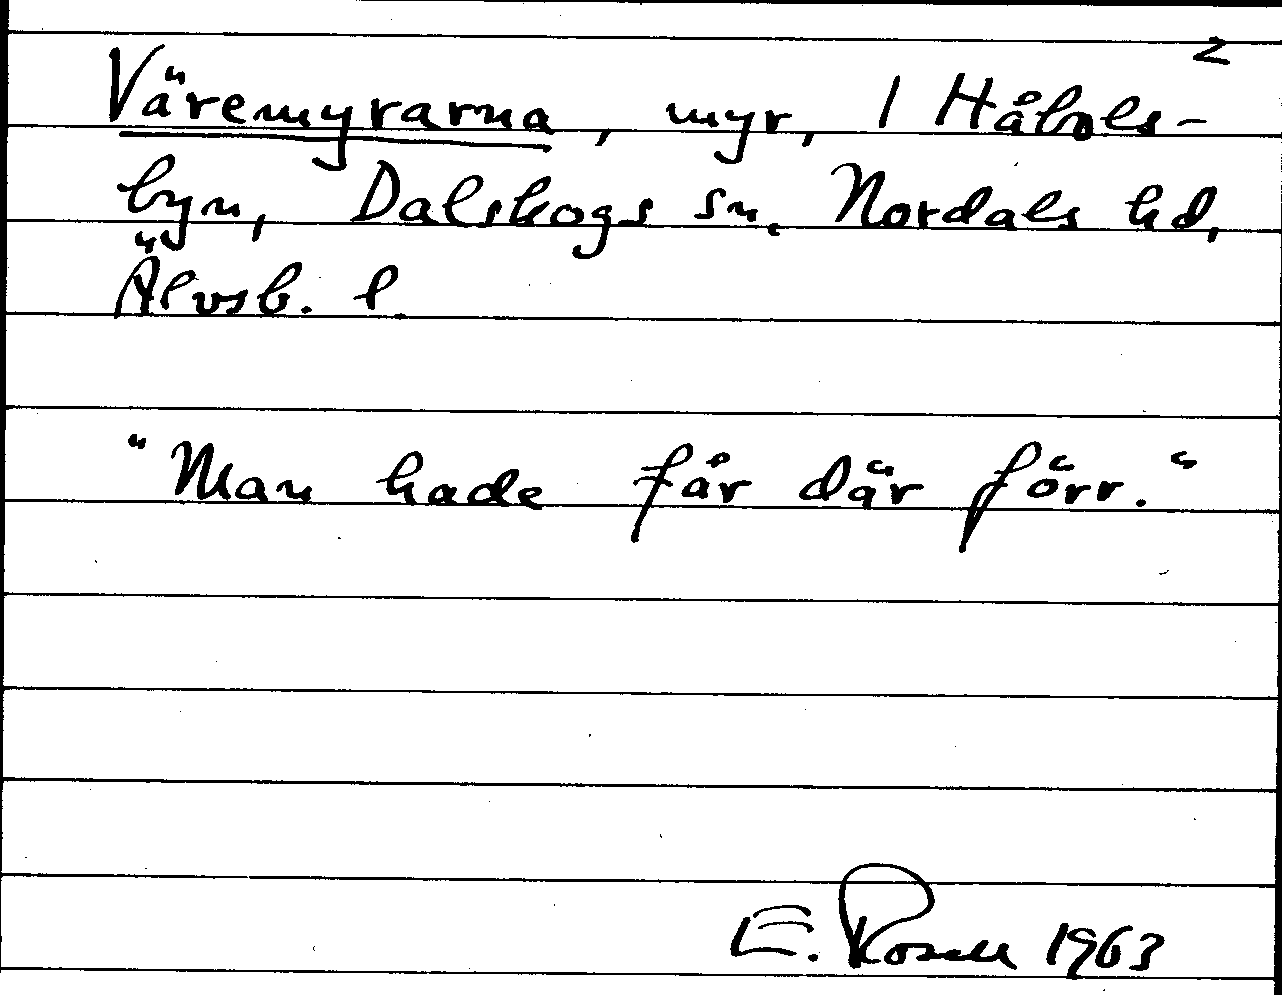 2
Väremyrarna, myr, 1 Håbols-
byn, Dalskogs sn. Nordals hd,
Älvsb. l.
"Man hade får där förr."
E. Rosell 1963